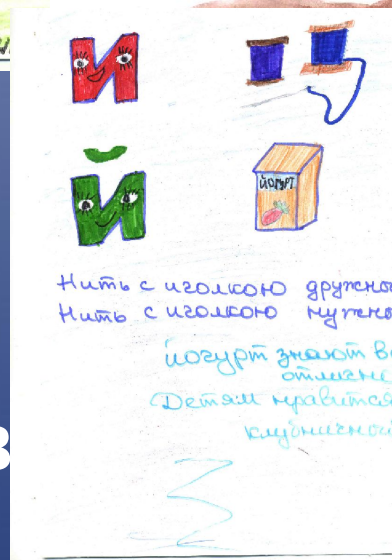 И
Й
йогурт
Нить с иголкою дружны
Нить с иголкою нужны
йогурт знают в
отлично
Детям нравится
клубничный